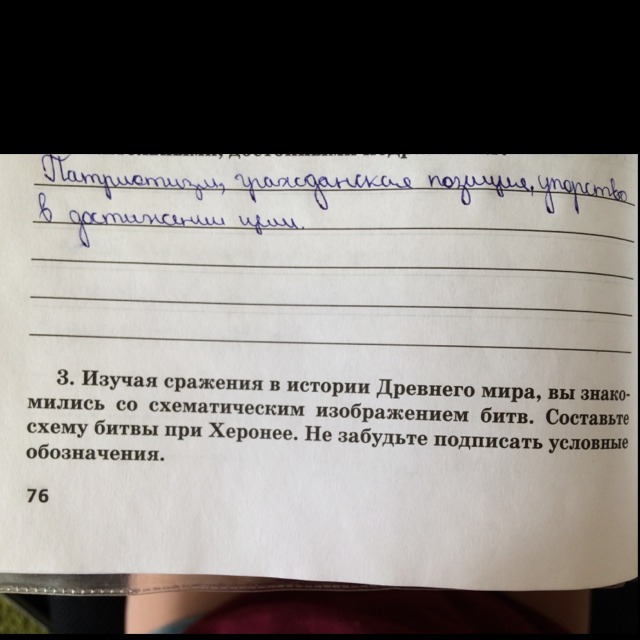 Патриотизм, гражданская позиция, упорство
в достижении цели.
3. Изучая сражения в истории Древнего мира, вы знако-
мились со схематическим изображением битв. Составьте
схему битвы при Херонее. Не забудьте подписать условные
обозначения.
76